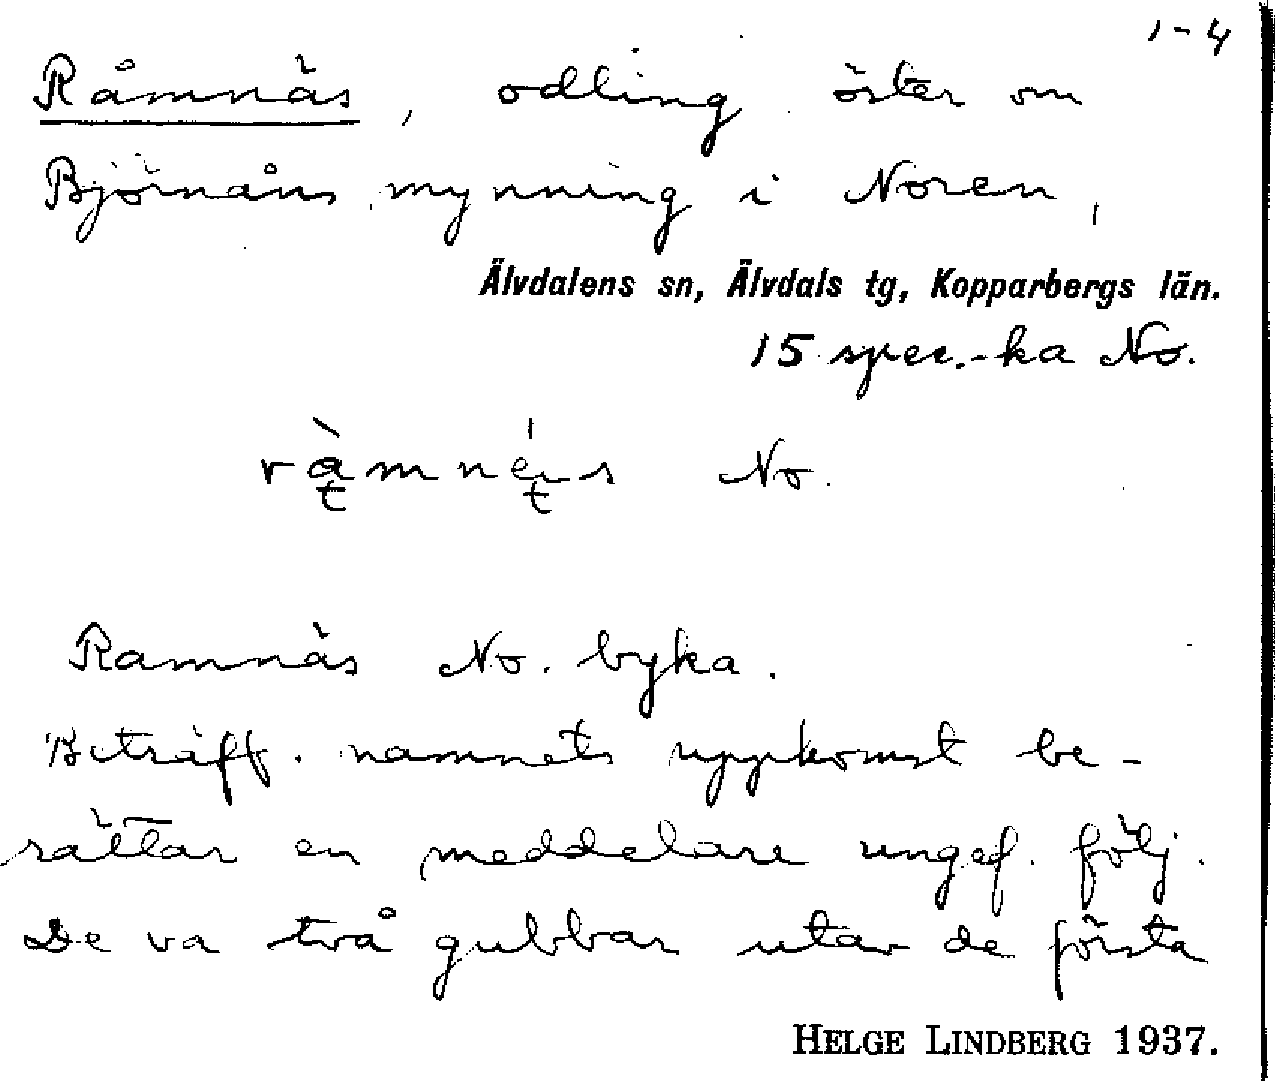 1-4
Råmnäs, odling öster om
Björnåns mynning i Noren,
Älvdalens sn, Älvdals tg, Kopparbergs län.
15 spec.-ka No.
No.
Ramnäs No. byka.
Beträff. namnets uppkomst be-
rättar en meddelare ungef. följ.
De va två gubbar utav de första
HELGE LINDBERG 1937.